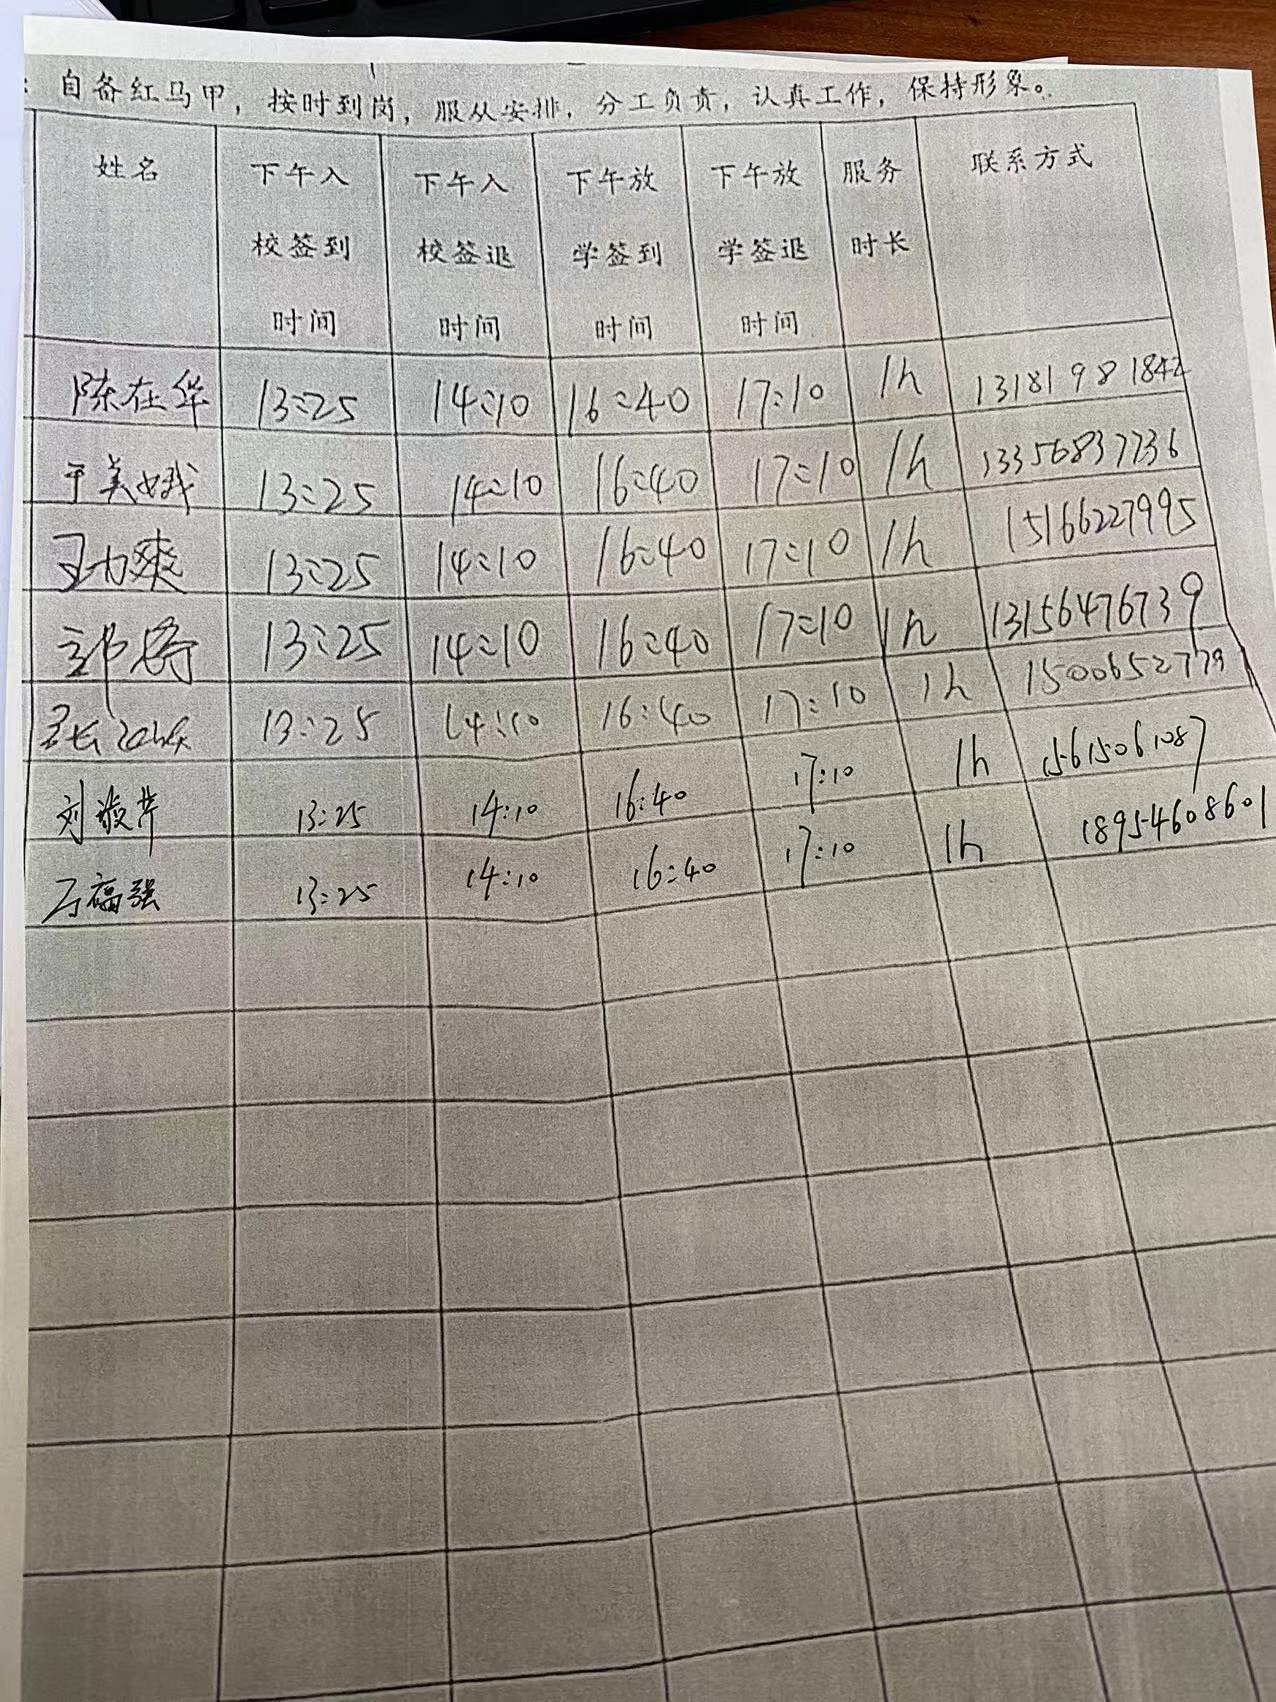 ：自备红马甲，按时到岗，服从安排，分工负责，认真工作，保持形象。
姓名 下午入校签到时间 下午入校签退时间 下午放学签到时间 下午放学签退时间 服务时长 联系方式
陈在华 13:25 14:10 16:40 17:10 1h 13181981842
于美娥 13:25 14:10 16:40 17:10 1h 13356837736
13:25 14:10 16:40 17:10 1h 15166227995
郭 13:25 14:10 16:40 17:10 1h 13156476739
13:25 14:10 16:40 17:10 1h 15006522779
刘凌芹 13:25 14:10 16:40 17:10 1h 15615061087
万福强 13:25 14:10 16:40 17:10 1h 18954608601